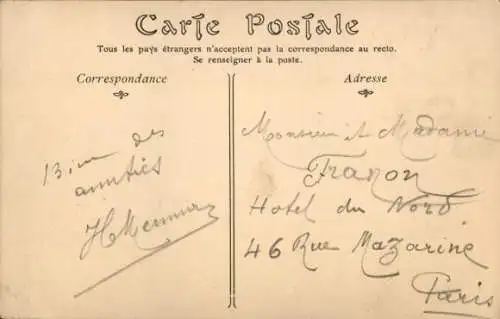 Carte Postale
Tous les pays étrangers n'acceptent pas la correspondance au recto.
Se renseigner à la poste.
Correspondance
Adresse
des
amitiés
Monsieur et Madame
Franon
Hotel du Nord
46 Rue Mazarine
Paris